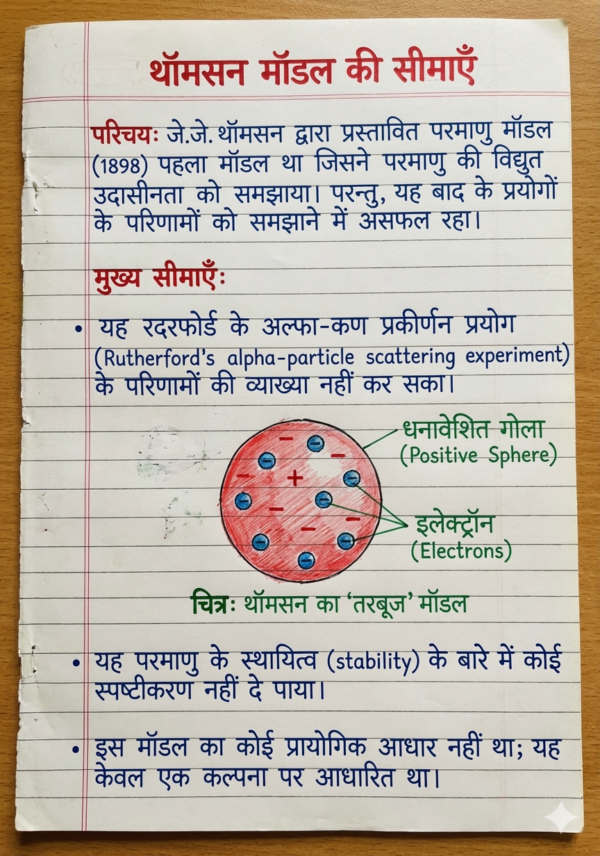 थॉमसन मॉडल की सीमाएँ
परिचयः जे.जे. थॉमसन द्वारा प्रस्तावित परमाणु मॉडल
(1898) पहला मॉडल था जिसने परमाणु की विद्युत
उदासीनता को समझाया। परन्तु, यह बाद के प्रयोगों
के परिणामों को समझाने में असफल रहा।
मुख्य सीमाएँः
• यह रदरफोर्ड के अल्फा-कण प्रकीर्णन प्रयोग
(Rutherford's alpha-particle scattering experiment)
के परिणामों की व्याख्या नहीं कर सका।
धनावेशित गोला
(Positive Sphere)
इलेक्ट्रॉन
(Electrons)
चित्रः थॉमसन का 'तरबूज' मॉडल
• यह परमाणु के स्थायित्व (stability) के बारे में कोई
स्पष्टीकरण नहीं दे पाया।
• इस मॉडल का कोई प्रायोगिक आधार नहीं था; यह
केवल एक कल्पना पर आधारित था।